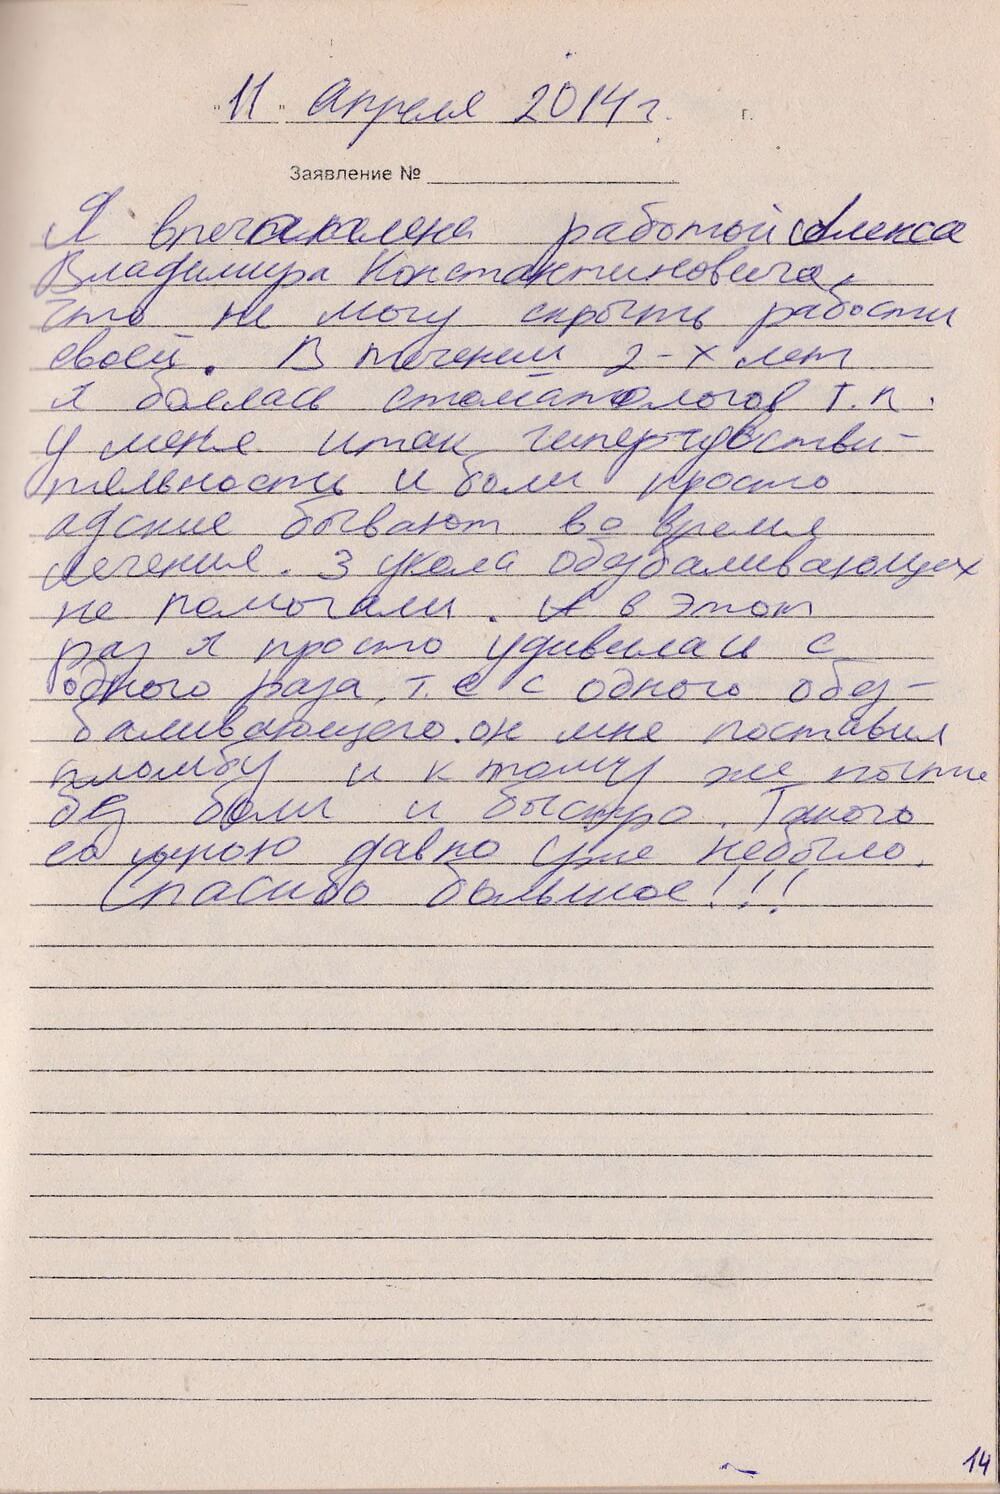 "11" Апреля 2014 г. г.
Заявление №
Я впечатлена работой Алекса
Владимира Константиновича,
что не могу скрыть радости
своей. В течении 2-х лет
я боялась стоматологов т.к.
у меня итак гиперчувстви-
тельность и боли просто
адские бывают во время
лечения. 3 укола обезбаливающих
не помогали. А в этот
раз я просто удивилась с
одного раза, т.е с одного обез-
баливающего он мне поставил
пломбу и к тому же
без боли и быстро. Такого
со мною давно уже небыло.
Спасибо большое!!!
14